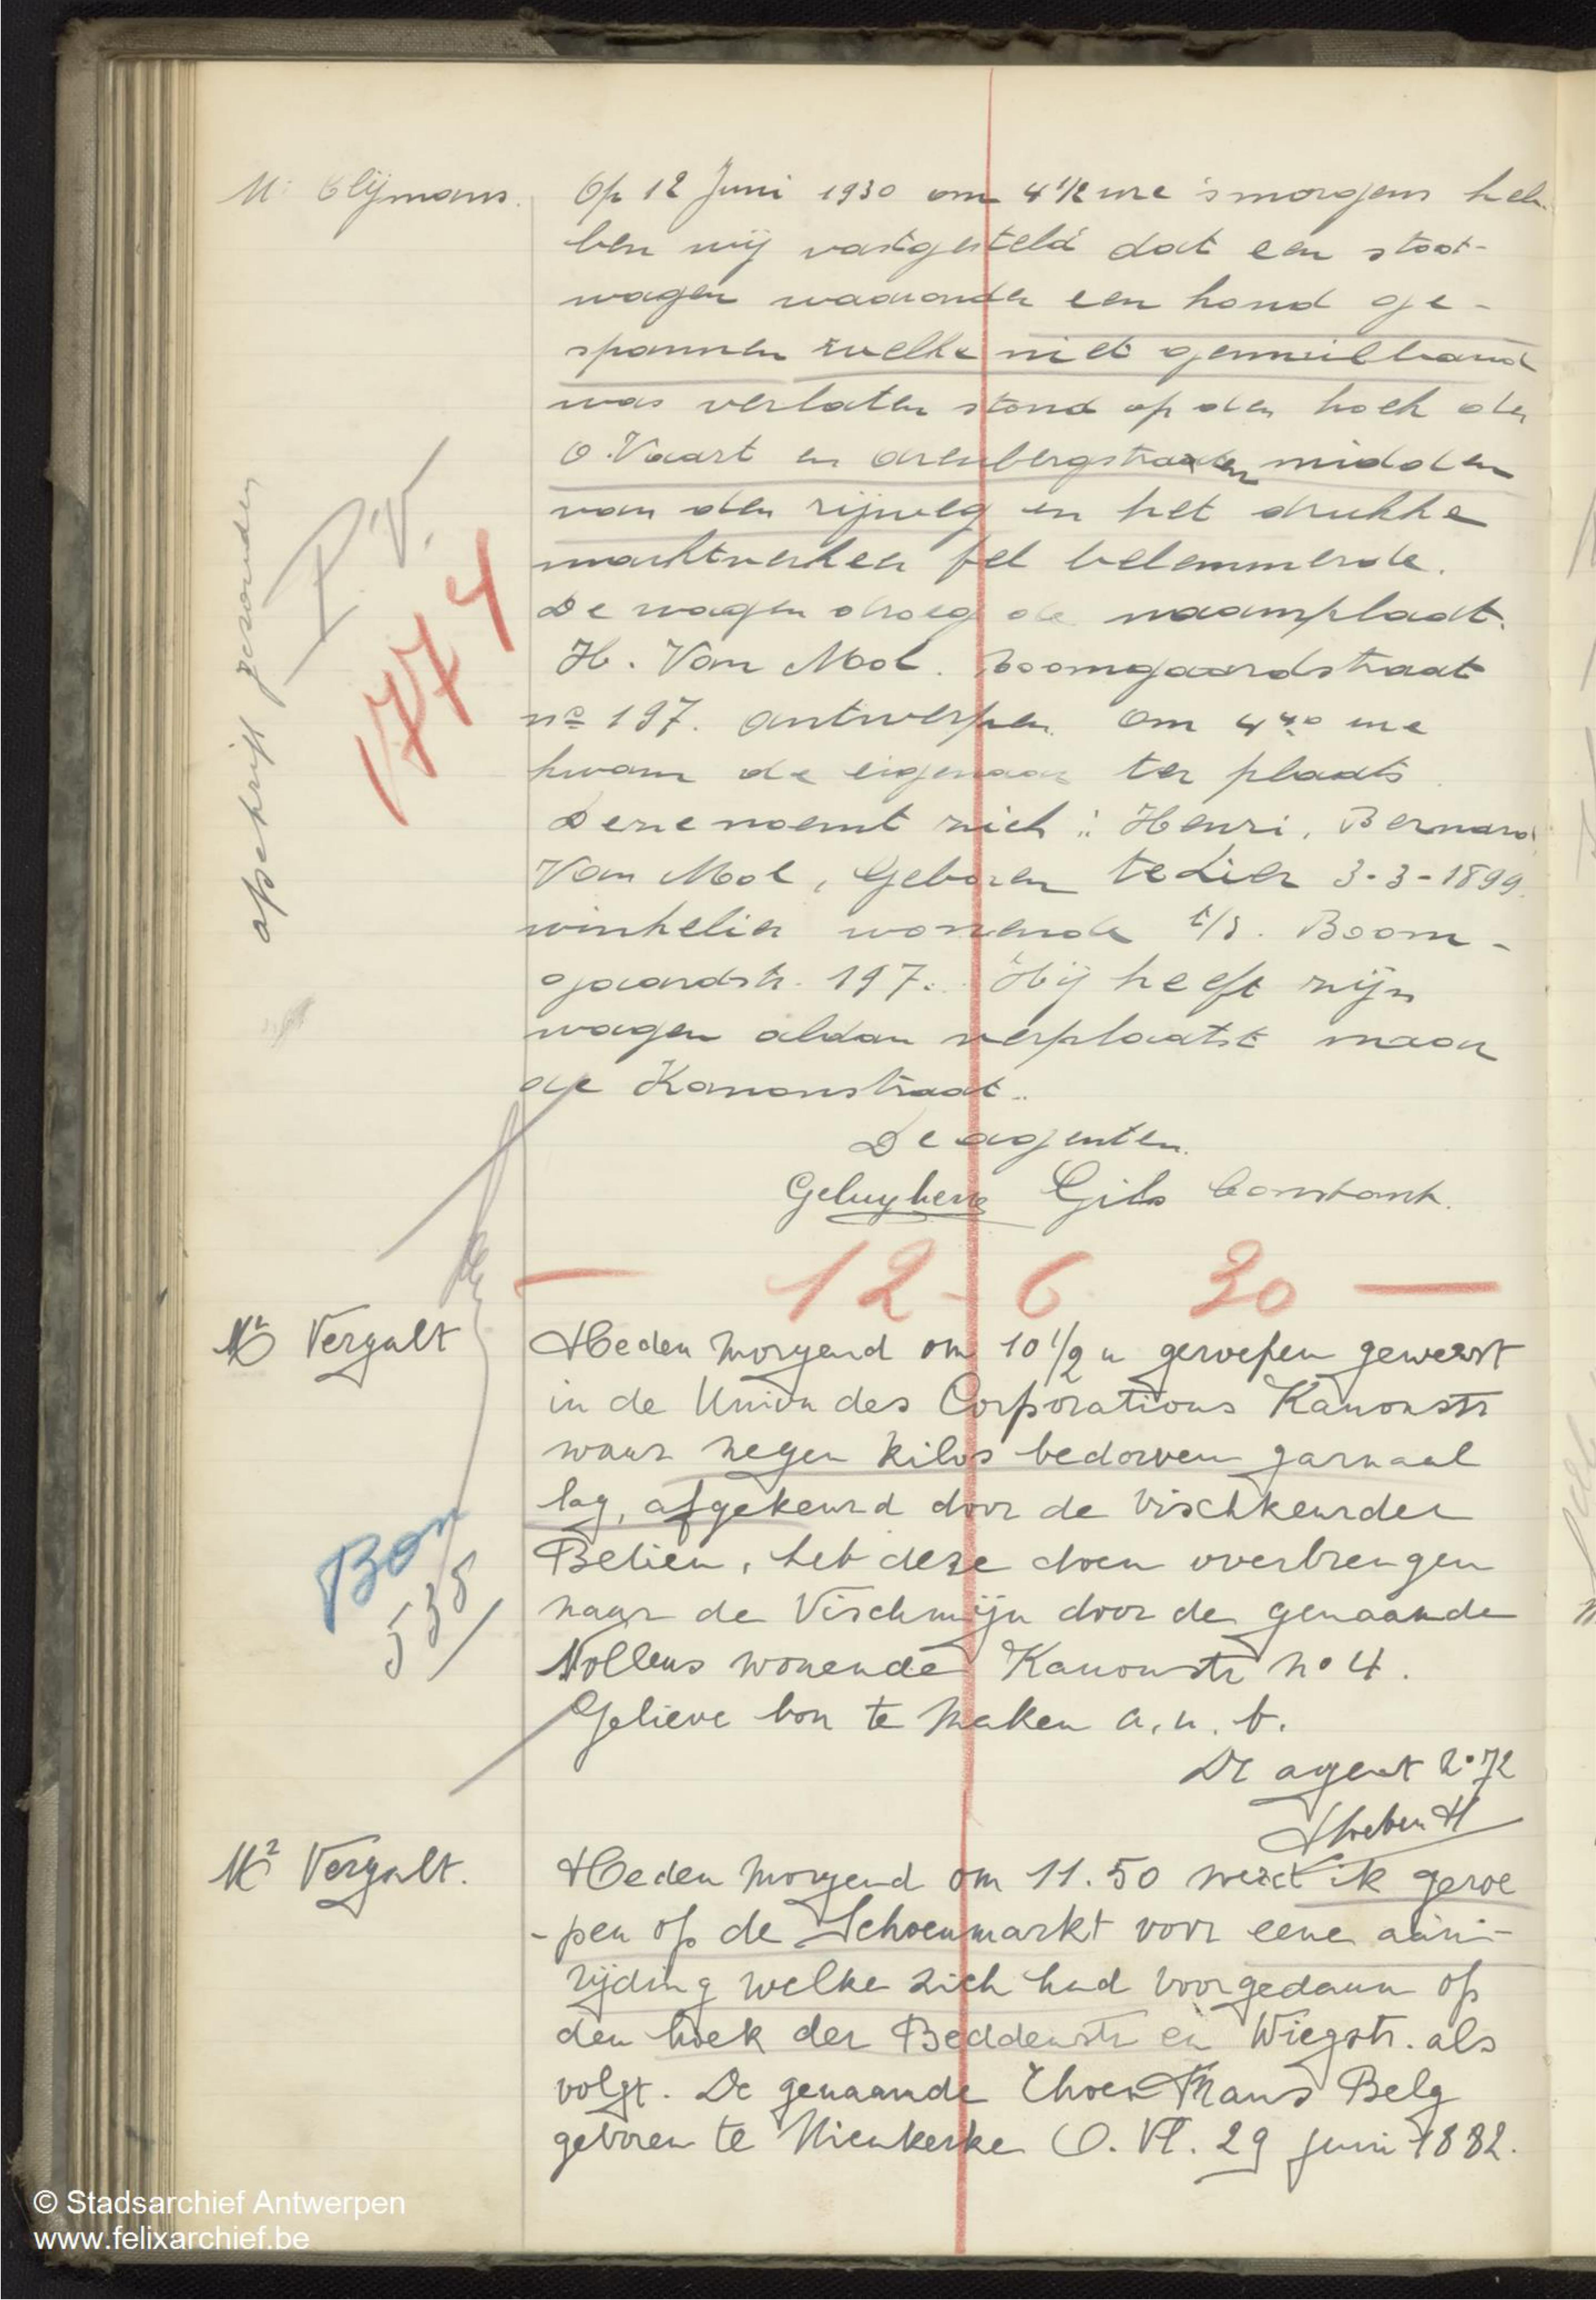 Mr Clijmans.
Op 12 Juni 1930 om 4 1/2 ure 's morgens heb-
ben wij vastgesteld dat een stoot-
wagen waaronder een hond ge-
spannen welke niet gemuilband
was verlaten stond op den hoek der
O. Vaart en Arenbergstraaten midden
van den rijweg en het drukke
marktverkeer fel belemmerde.
De wagen droeg de naamplaat.
H. Van Mol. Boomgaardstraat
no 197. Antwerpen. Om 4 40 ure
kwam de eigenaar ter plaats
Deze noemt zich : Henri, Bernard
Van Mol, Geboren te Lier 3-3-1899.
winkelier wonende t/s. Boom-
gaardstr. 197. Hij heeft zijn
wagen aldan verplaatst naar
de Kanonstraat.
De agenten.
Geluykens Gils Constant.
afschrift gezonden
P.V.
1774
— 12 - 6 30 —
Mr Vergalt
Heden morgend om 10 1/2 u geroepen geweest
in de Union des Corporations Kanonstr
waar negen kilos bedorven garnaal
lag, afgekeurd door de vischkeurder
Belien, heb deze doen overbrengen
naar de Vischmijn door de genaamde
Nollens wonende Kanonstr no 4.
Gelieve bon te maken a. u. b.
De agent 2.72
Bon
535
Mr Vergalt.
Heden morgend om 11.50 werd ik geroe
-pen op de Schoenmarkt voor eene aan-
rijding welke zich had voorgedaan op
den hoek der Beddenstr en Wiegstr. als
volgt. De genaamde Frans Belg
geboren te Nieukerke O. Vl. 29 juni 1882.
© Stadsarchief Antwerpen
www.felixarchief.be